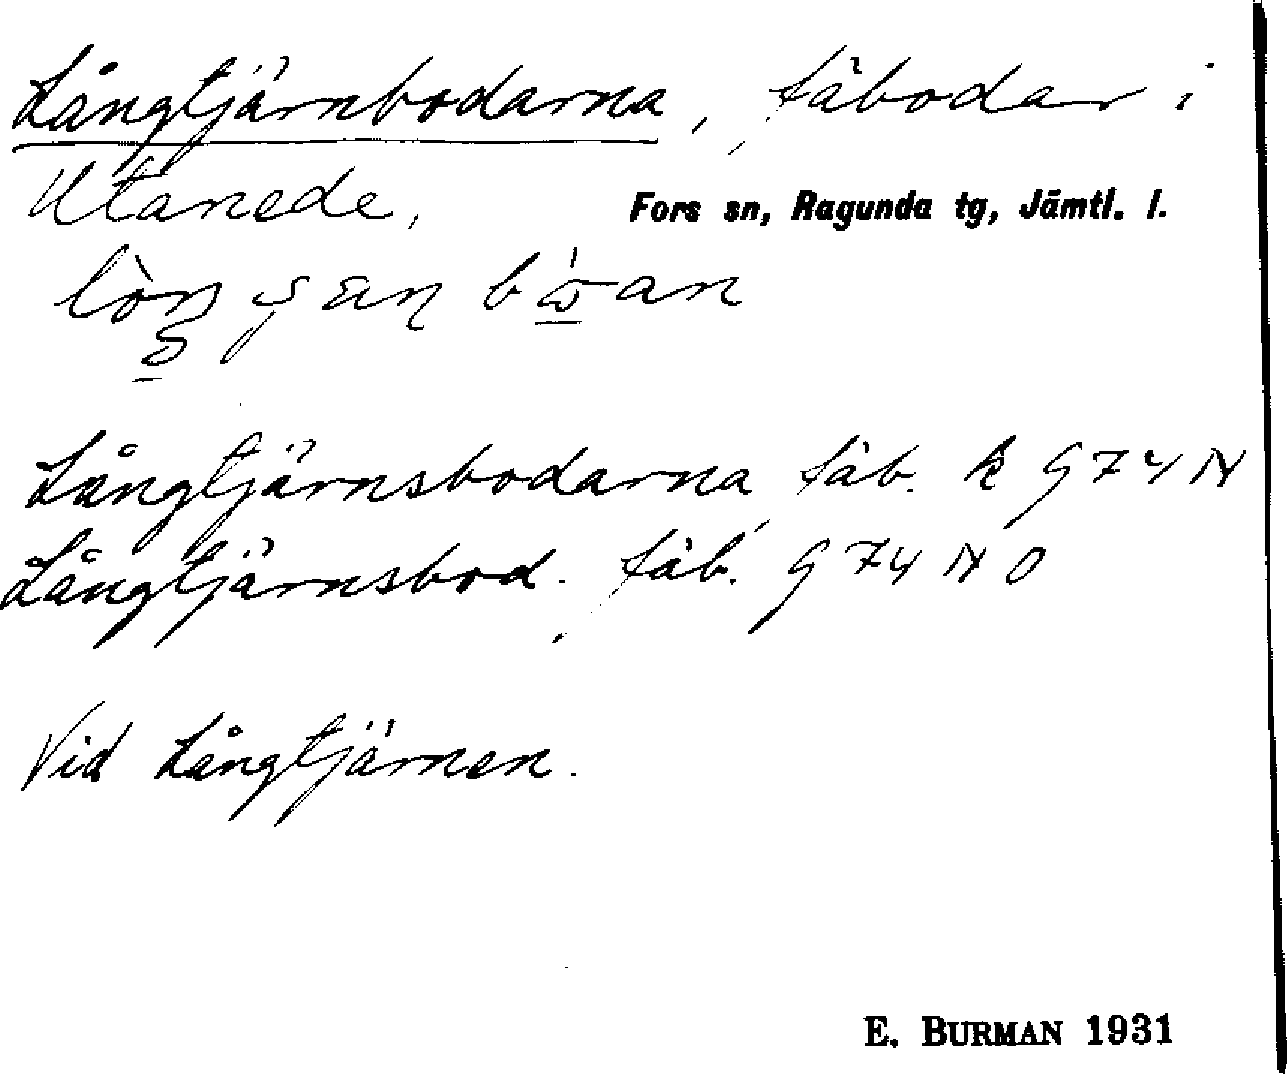 Långtjärnbodarna, fäbodar i
Utanede, Fors sn, Ragunda tg, Jämtl. l.
Långtjärnsbodarna, fäb. k G 74 N
Långtjärnsbod. fäb. G 74 N O
Vid Långtjärnen.
E. BURMAN 1931